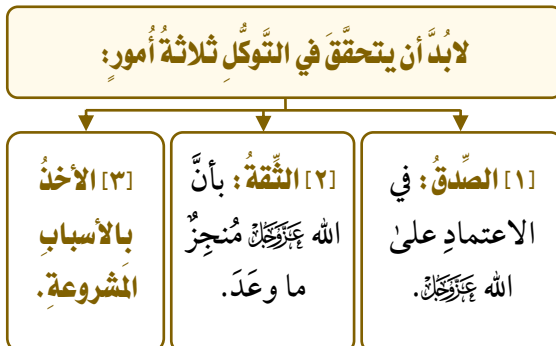 لابُدَّ أن يتحقَّقَ في التَّوكُّلِ ثلاثةُ أُمورٍ:
[١] الصِّدقُ: في
الاعتمادِ علىٰ
الله عَزَّوَجَلَّ.
[٢] الثِّقةُ: بأنَّ
الله عَزَّوَجَلَّ مُنجِزٌ
ما وعَدَ.
[٣] الأخذُ
بالأسبابِ
المَشروعةِ.